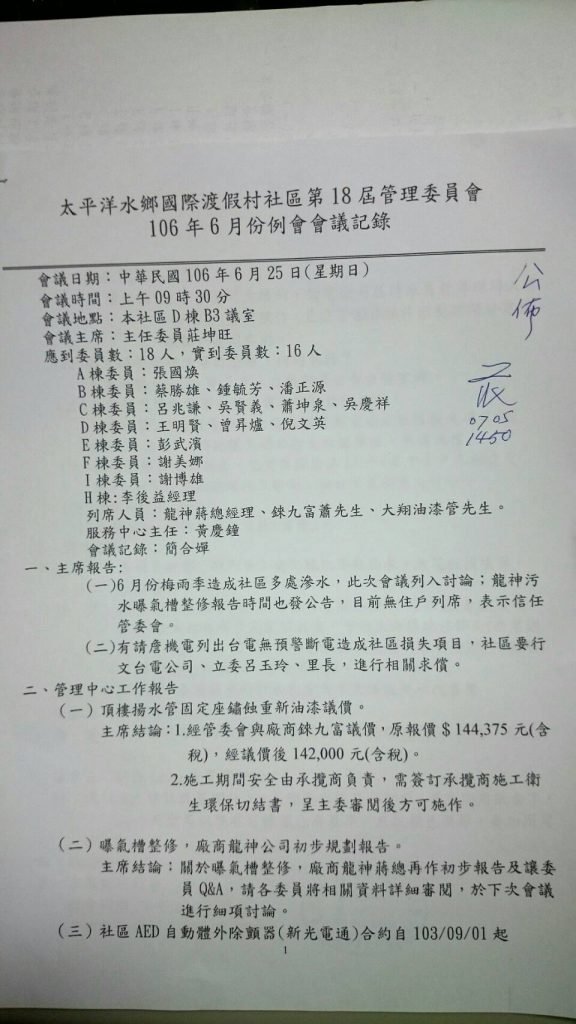 太平洋水鄉國際渡假村社區第18屆管理委員會
106年6月份例會會議記錄
會議日期：中華民國106年6月25日(星期日)
會議時間：上午09時30分
會議地點：本社區D棟B3議室
會議主席：主任委員莊坤旺
應到委員數：18人，實到委員數：16人
A棟委員：張國煥
B棟委員：蔡勝雄、鍾毓芳、潘正源
C棟委員：呂兆謙、吳賢義、蕭坤泉、吳慶祥
D棟委員：王明賢、曾昇爐、倪文英
E棟委員：彭武濱
F棟委員：謝美娜
I棟委員：謝博雄
H棟:李後益經理
列席人員：龍神蔣總經理、錸九富蕭先生、大翔油漆管先生。
服務中心主任：黃慶鐘
會議記錄：簡合嬋
一、主席報告:
(一)6月份梅雨季造成社區多處滲水，此次會議列入討論；龍神污
水曝氣槽整修報告時間也發公告，目前無住戶列席，表示信任
管委會。
(二)有請詹機電列出台電無預警斷電造成社區損失項目，社區要行
文台電公司、立委呂玉玲、里長，進行相關求償。
二、管理中心工作報告
(一)頂樓揚水管固定座鏽蝕重新油漆議價。
主席結論：1.經管委會與廠商錸九富議價，原報價＄144,375元(含
稅)，經議價後142,000元(含稅)。
2.施工期間安全由承攬商負責，需簽訂承攬商施工衛
生環保切結書，呈主委審閱後方可施作。
(二)曝氣槽整修，廠商龍神公司初步規劃報告。
主席結論：關於曝氣槽整修，廠商龍神蔣總再作初步報告及讓委
員Q&A，請各委員將相關資料詳細審閱，於下次會議
進行細項討論。
(三)社區AED自動體外除顫器(新光電通)合約自103/09/01起
1
公佈
0705
1450